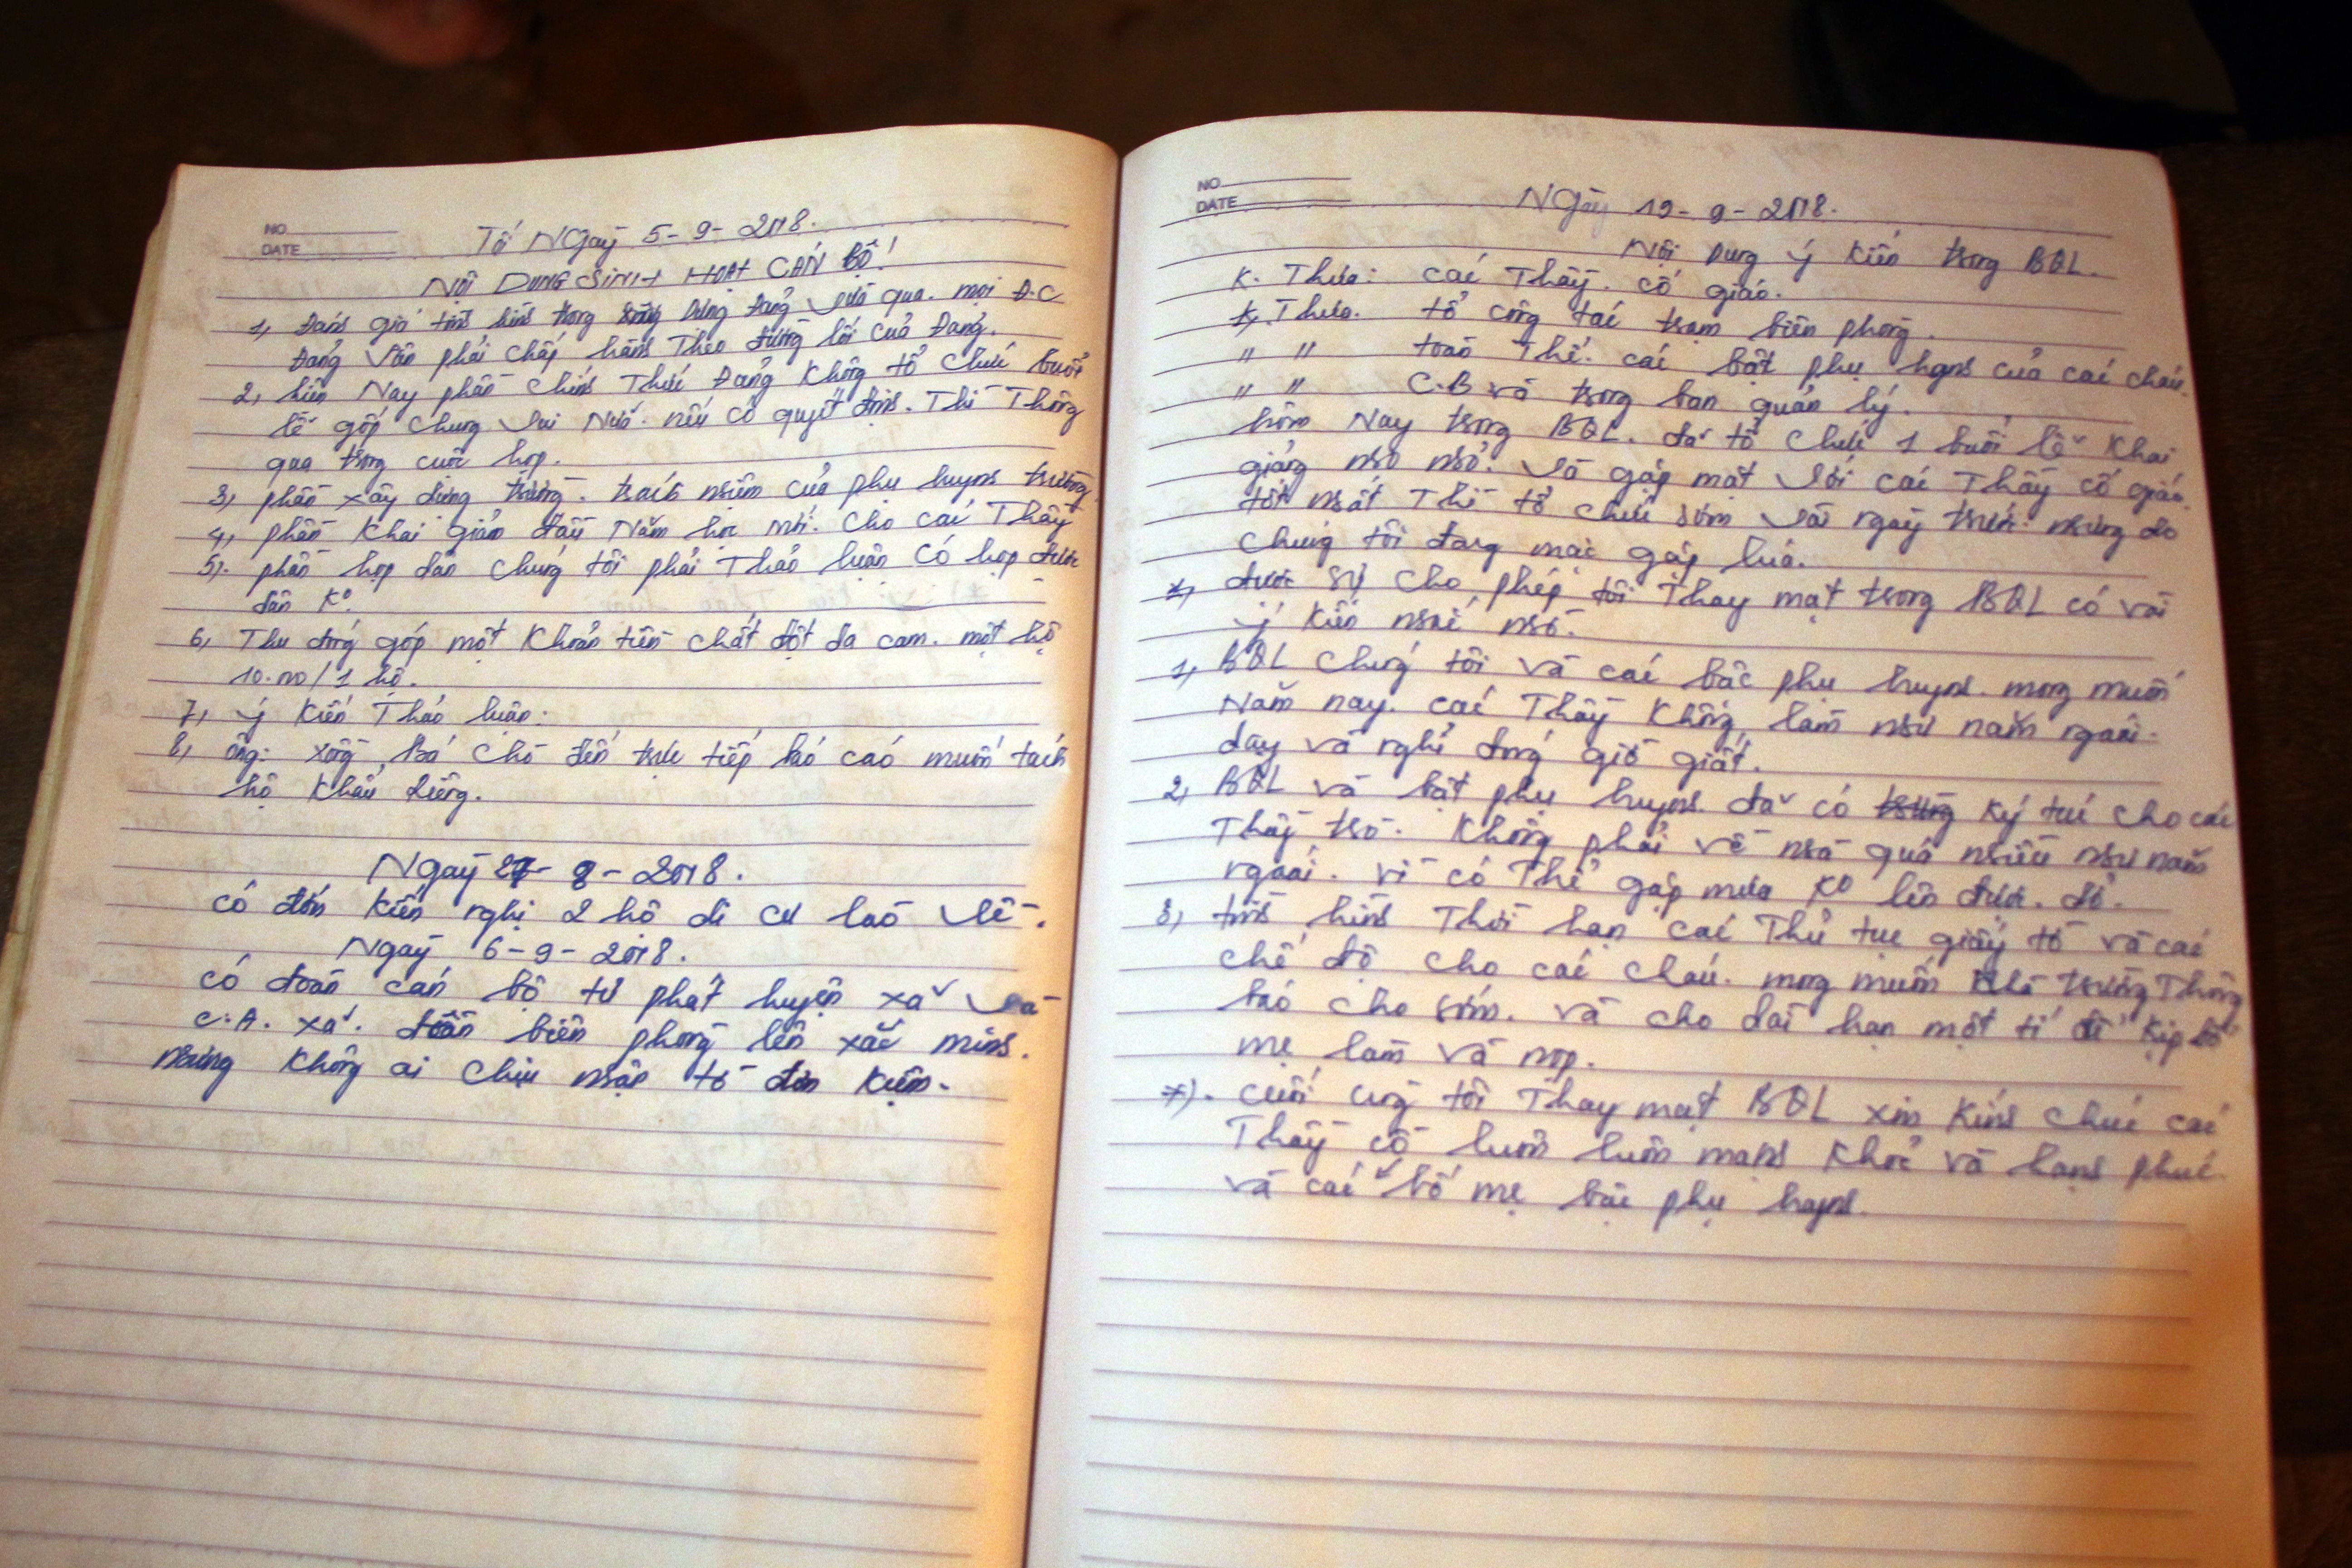 NO
DATE
Tối Ngày 5-9-2018.
NỘI DUNG SINH HOẠT CÁN BỘ!
1, Đánh giá tình hình trong Đảng vừa qua. mọi Đ.C
Đảng vẫn phải chấp hành Theo đường lối của Đảng.
2, hiện Nay phần chính Thức Đảng không tổ chức buổi
lễ góp chung nếu có quyết định. Thì Thông
qua trong cuộc họp.
3, phần xây dựng trường. trách nhiệm của phụ huynh trường
4, phần Khai giản đầu Năm học mới. cho các Thầy
5). phần họp dân chúng tôi phải Thảo luận có họp được
dân Ko.
6, Thu đóng góp một Khoản tiền chất độc da cam. một hộ
10.000/1 hộ.
7, ý kiến Thảo luận:
8, ông: xồng Bá Chò đến trực tiếp báo cáo muốn tách
hộ khẩu diêng.
Ngày 27-8-2018.
có đơn kiến nghị 2 hộ di cư lào về.
Ngày 6-9-2018.
có đoàn cán bộ tự phát huyện xã và
C.A. xã. đồn biên phòng lên xác minh.
nhưng không ai chịu nhập tố đơn kiện.
NO
DATE
NGày 19-9-2018.
Nội Dung ý kiến trong BQL.
K. Thưa: các Thầy. cô giáo.
K. Thưa. tổ công tác trạm biên phòng.
" " toàn Thể. các bậc phụ huynh của các cháu.
" " C.B và trong ban quản lý.
hôm Nay trong BQL. đã tổ chức 1 buổi lễ khai
giảng nho nhỏ. và gặp mặt với các Thầy cô giáo.
tốt nhất Thì tổ chức sớm vài ngày trước nhưng do
chúng tôi đang mạc gặp lúa.
*, được sự cho phép tôi Thay mạt trong BQL có vài
ý kiến nhỏ nhỏ.
1, BQL chúng tôi và các bậc phụ huynh. mong muốn
Năm nay. các Thầy không làm như năm ngoái.
dạy và nghỉ đúng giờ giất.
2, BQL và bật phụ huynh. đã có ký túc cho các
Thầy trò. không phải về nhà quá nhiều như năm
ngoái. vì có Thể gặp mưa Ko lên được. đó.
3, tình hình Thời hạn các Thủ tục giấy tờ và các
chế độ cho các cháu. mong muốn nhà trường Thông
báo cho sớm. và cho dài hạn một tí để kịp bố
mẹ làm và nộp.
*). cuối cùng tôi Thay mạt BQL xin kính chúc các
Thầy cô luôn luôn mạnh khoẻ và hạnh phúc.
và các bố mẹ bậc phụ huynh.